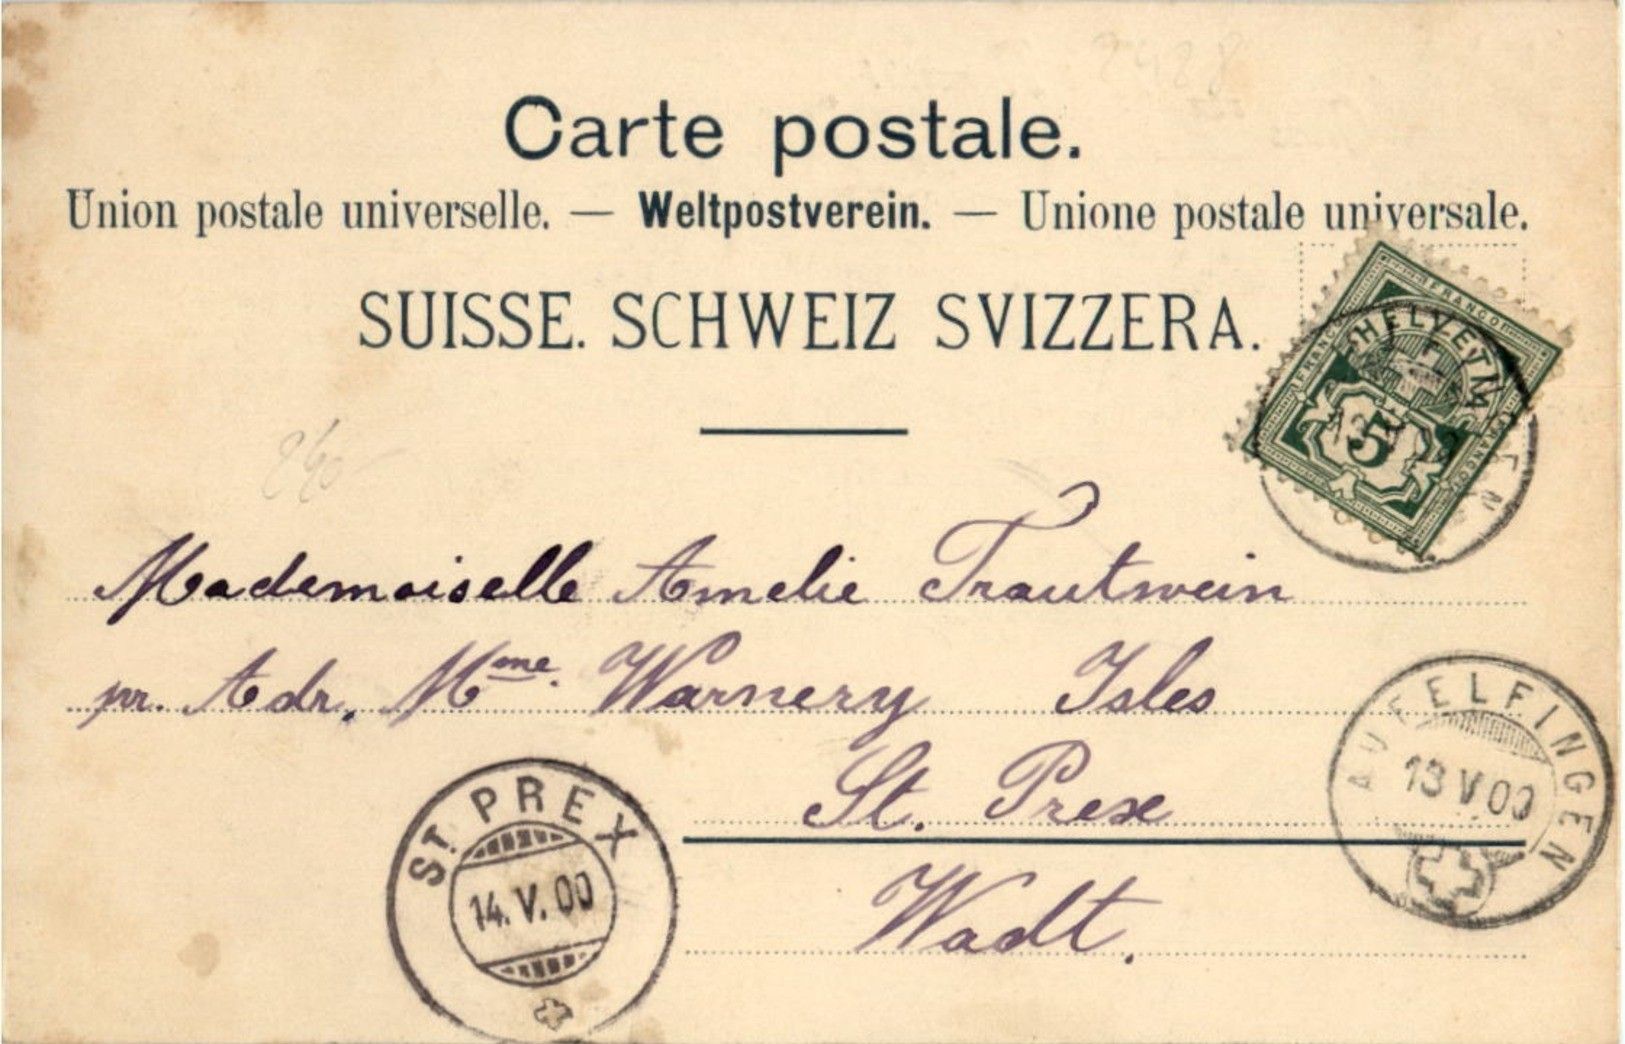 Carte postale.
Union postale universelle. — Weltpostverein. — Unione postale universale.
SUISSE. SCHWEIZ SVIZZERA.
HELVETIA
FRANCO
FRANCO
FRANCO
5
Mademoiselle Amelie Trautwein
pr. Adr. Mme. Warnery Isles
St. Prex
Wadt.
ST. PREX
14. V. 00
13 V. 00